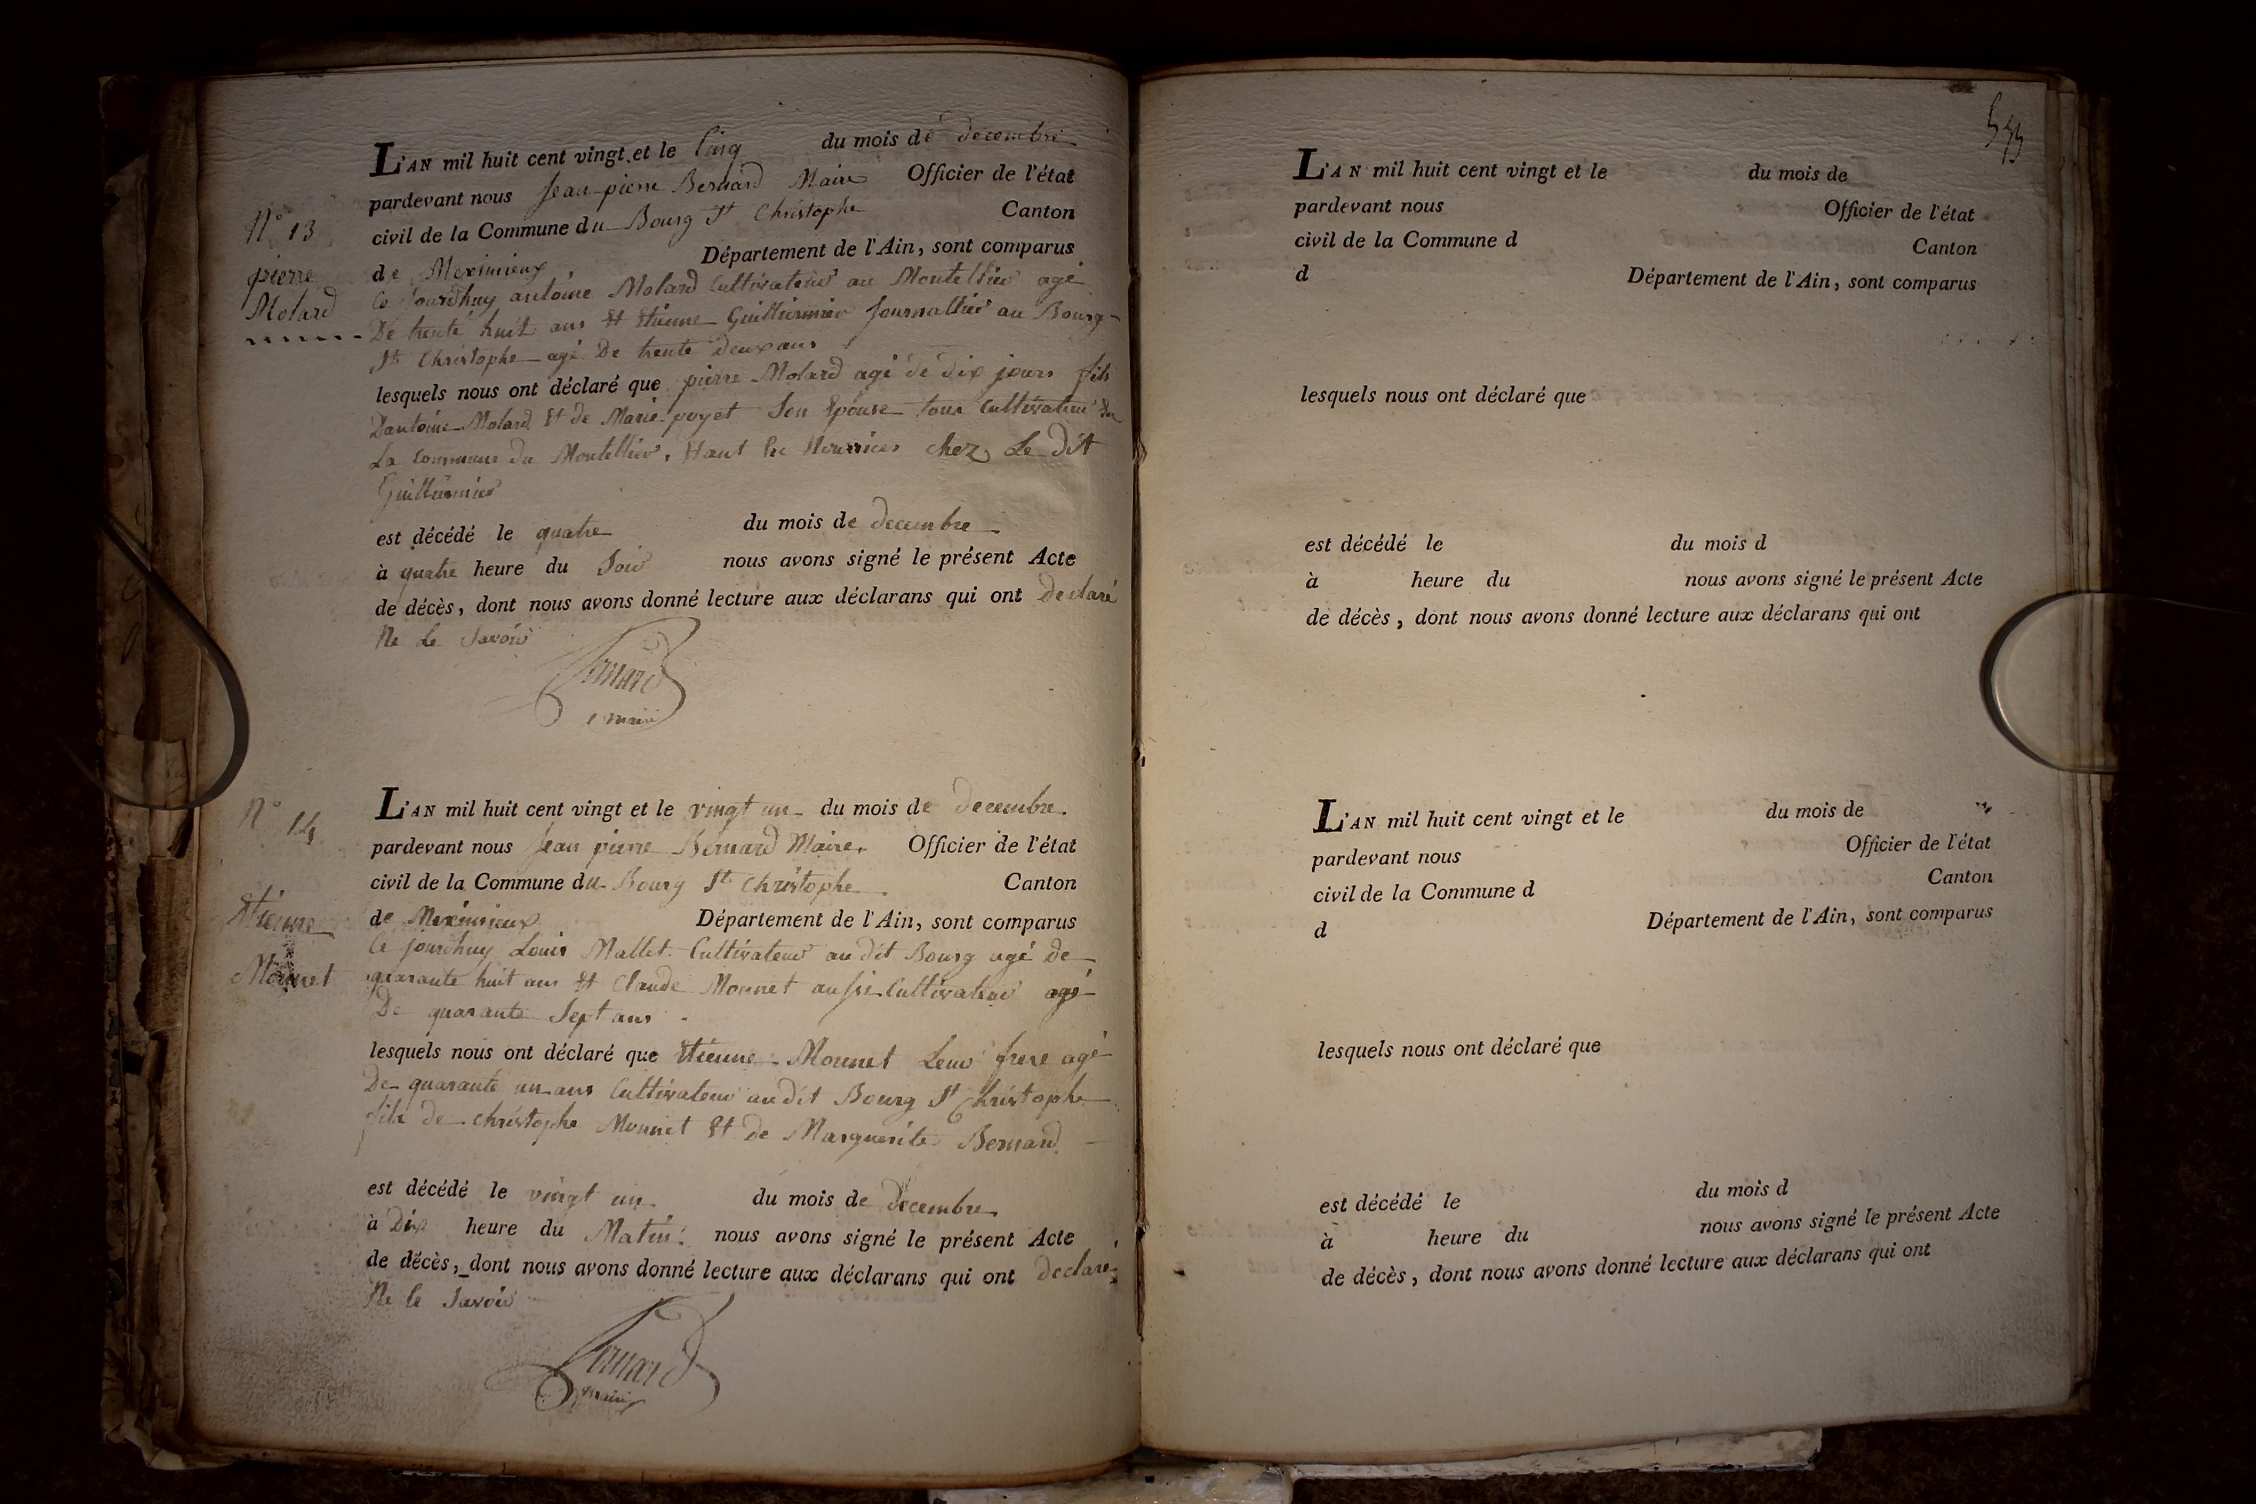 N° 13
pierre
Molard
L'AN mil huit cent vingt et le Cinq du mois de decembre
pardevant nous Jean pierre Bernard Maire Officier de l'état
civil de la Commune du Bourg St Christophe Canton
de Meximieux Département de l'Ain, sont comparus
Ce Jourdhuy antoine Molard Cultivateur au Montellier agé
De trente huit ans Et Etienne Guillermier Journallier au Bourg
St Christophe agé De trente Deux ans
lesquels nous ont déclaré que pierre Molard agé de dix jours fils
Dantoine Molard Et de Marie poyet Son Epouse tous Cultivateur
La Commune du Montellier, Etant En Nourrices chez Le Dit
Guillermier
est décédé le quatre du mois de decembre
à quatre heure du Soir nous avons signé le présent Acte
de décès, dont nous avons donné lecture aux déclarans qui ont Declaré
Ne Le Savoir
Bernard
maire
N° 14
Etienne
Monnet
L'AN mil huit cent vingt et le vingt un du mois de decembre
pardevant nous Jean pierre Bernard Maire, Officier de l'état
civil de la Commune du Bourg St Christophe Canton
de Meximieux Département de l'Ain, sont comparus
Ce jourdhuy Louis Mallet Cultivateur au dit Bourg agé De
quarante huit ans Et Claude Monnet aussi Cultivateur agé
De quarante Sept ans
lesquels nous ont déclaré que Etienne Monnet Leur frere agé
De quarante un ans Cultivateur au dit Bourg St Christophe
fils de Christophe Monnet Et de Marguerite Bernard
est décédé le vingt un du mois de Decembre
à Dix heure du Matin nous avons signé le présent Acte
de décès, dont nous avons donné lecture aux déclarans qui ont declaré
Ne le Savoir
Bernard
maire
L'AN mil huit cent vingt et le du mois de
pardevant nous Officier de l'état
civil de la Commune d Canton
d Département de l'Ain, sont comparus
lesquels nous ont déclaré que
est décédé le du mois d
à heure du nous avons signé le présent Acte
de décès, dont nous avons donné lecture aux déclarans qui ont
L'AN mil huit cent vingt et le du mois de
pardevant nous Officier de l'état
civil de la Commune d Canton
d Département de l'Ain, sont comparus
lesquels nous ont déclaré que
est décédé le du mois d
à heure du nous avons signé le présent Acte
de décès, dont nous avons donné lecture aux déclarans qui ont